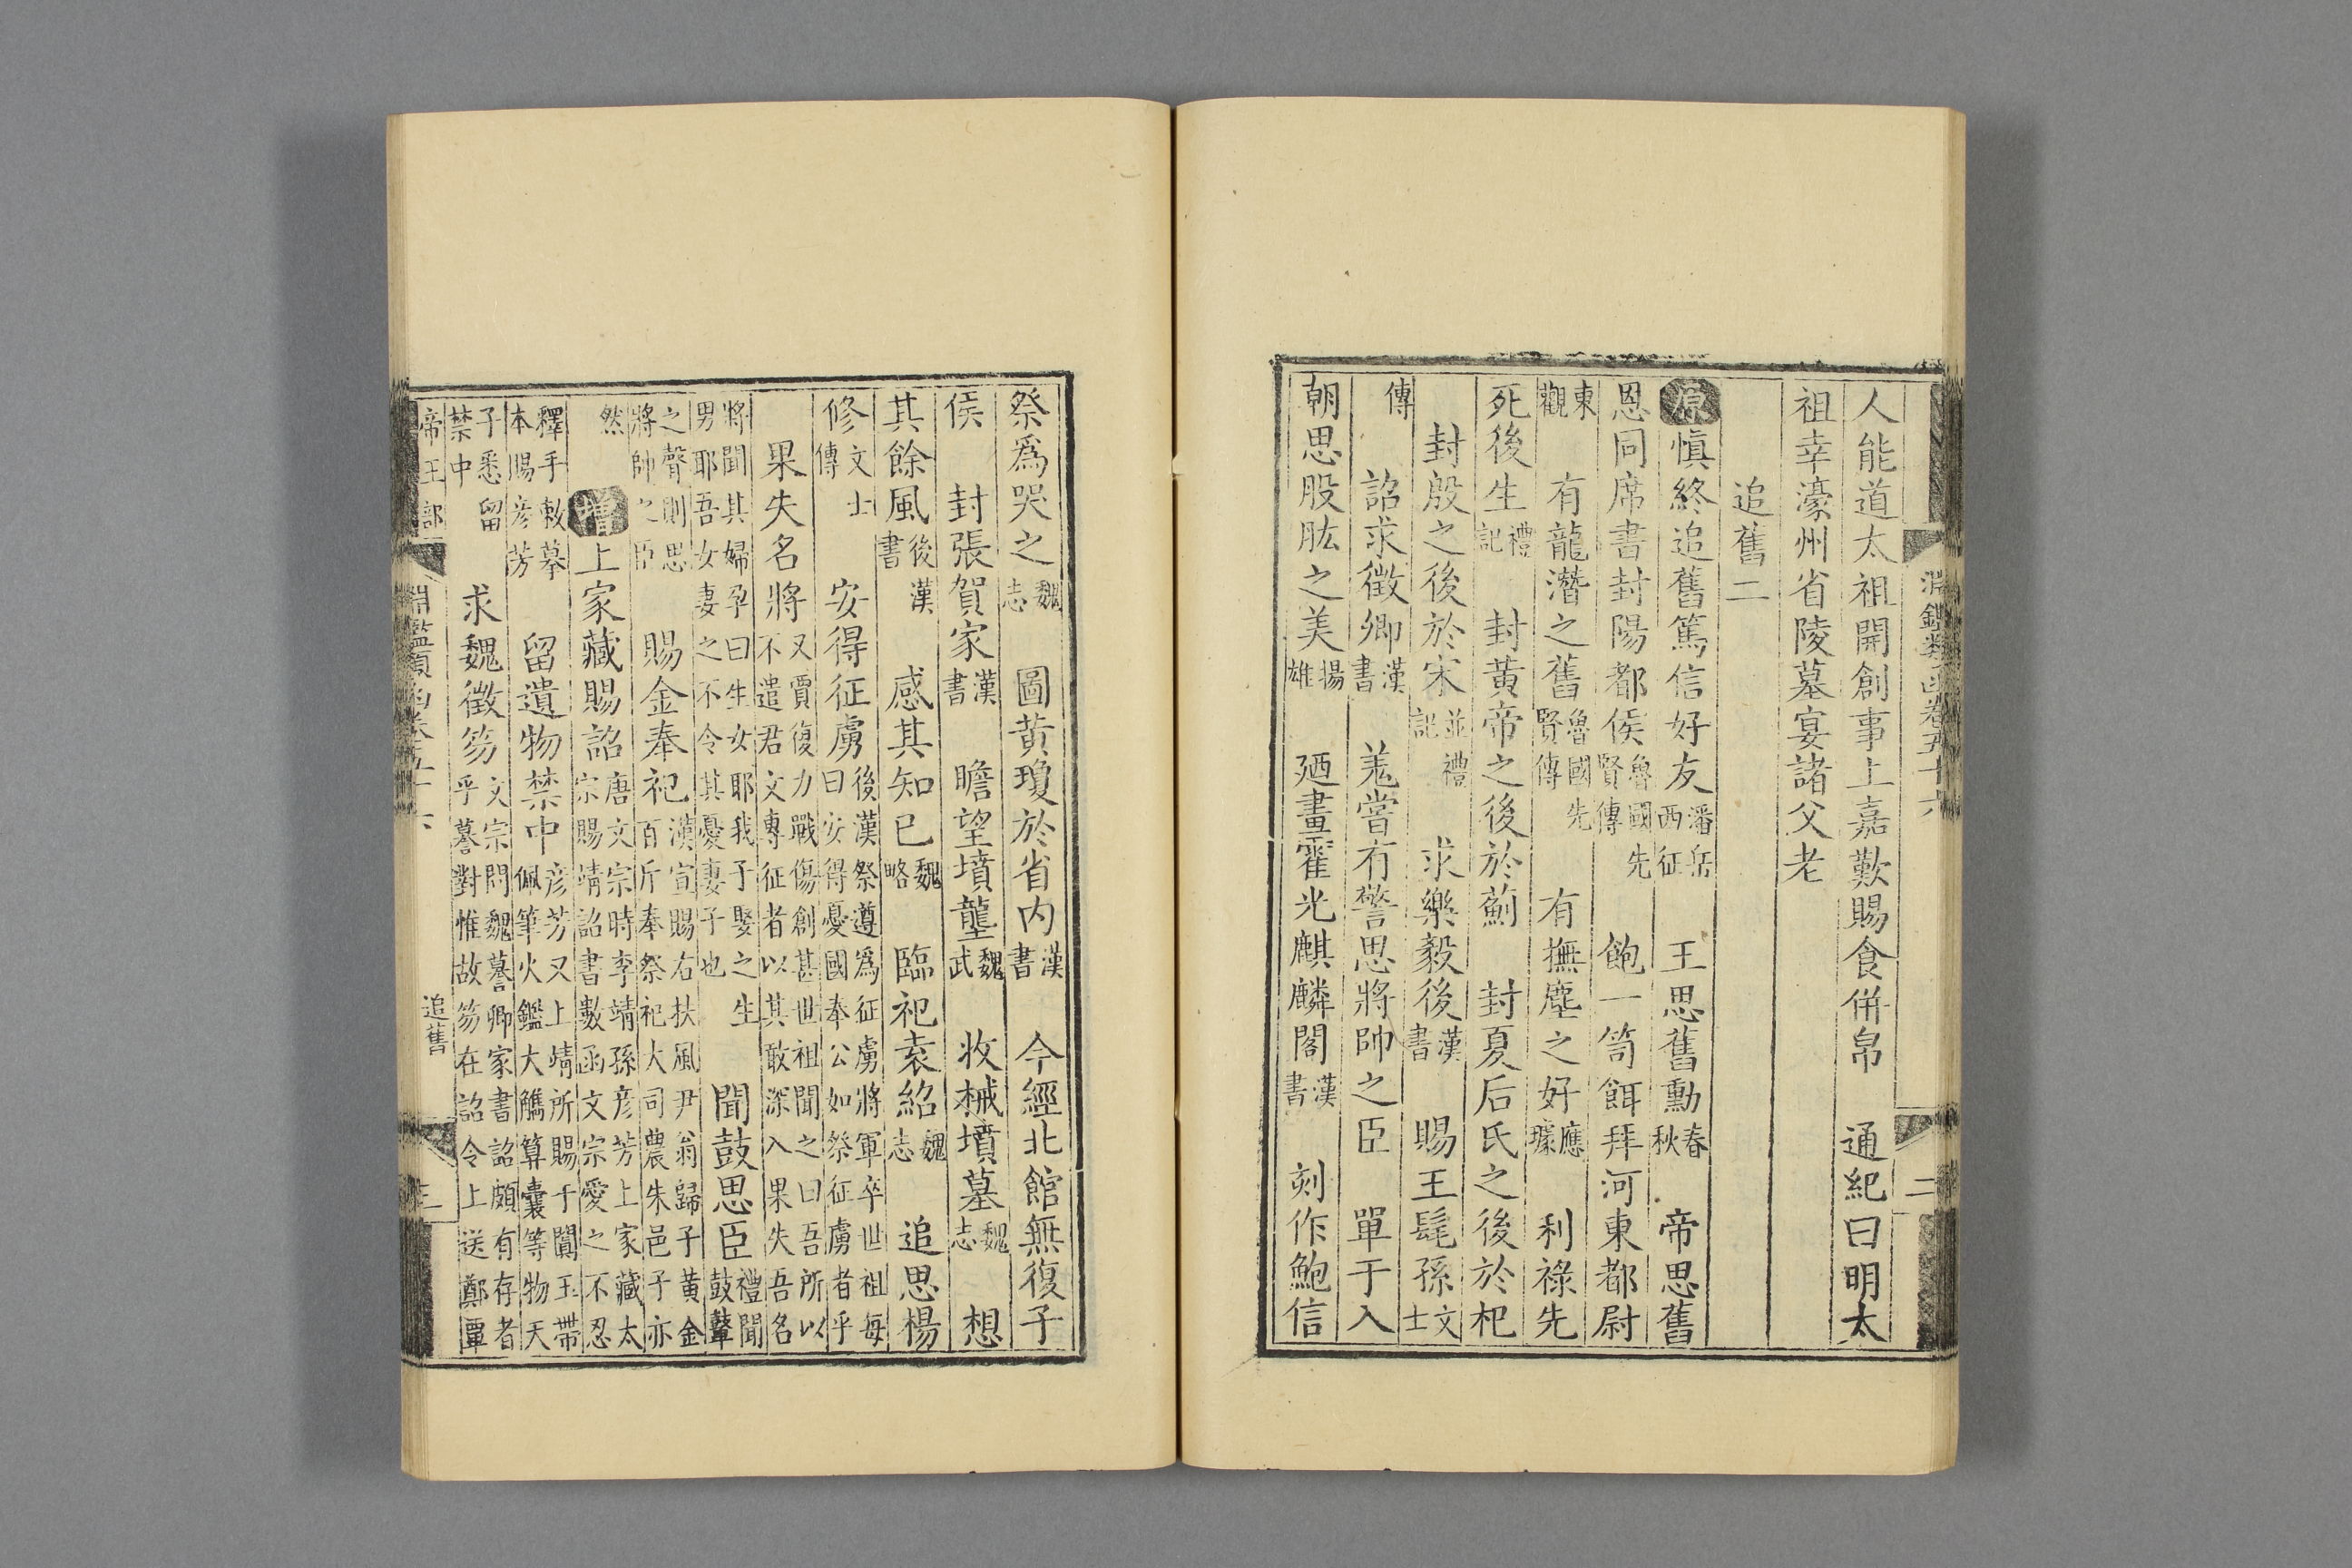 淵鑑類函卷五十六
二
人能道太祖開創事上嘉歎賜食併帛　通紀曰明太
祖幸濠州省陵墓宴諸父老
追舊二
原慎終追舊篤信好友潘岳西征　王思舊勳春秋　帝思舊
恩同席書封陽都侯魯國先賢傳　飽一笥餌拜河東都尉
東觀　有龍潛之舊魯國先賢傳　有撫塵之好應璩　利祿先
死後生禮記　封黃帝之後於薊　封夏后氏之後於杞
封殷之後於宋並禮記　求樂毅後漢書　賜王髦孫文士
傳　詔求徵卿漢書　羗嘗有警思將帥之臣　單于入
朝思股肱之美揚雄　廼畫霍光麒麟閣漢書　刻作鮑信
祭爲哭之魏志　圖黃瓊於省内漢書　今經北館無復子
侯　封張賀家漢書　瞻望墳壟魏武　收械墳墓魏志　想
其餘風後漢書　感其知已魏略　臨祀袁紹魏志　追思楊
修文士傳　安得征虜後漢祭遵爲征虜將軍卒世祖每曰安得憂國奉公如祭征虜者乎
果失名將又賈復力戰傷創甚世祖聞之曰吾所以不遣君文專征者以其敢深入果失吾名
將聞其婦孕曰生女耶我子娶之生男耶吾女妻之不令其憂妻子也　聞鼓思臣禮聞鼓鼙
之聲則思將帥之臣　賜金奉祀漢宣賜右扶風尹翁歸子黃金百斤奉祭祀大司農朱邑子亦
然　增上家藏賜詔唐文宗時李靖孫彦芳上家藏太宗賜靖詔書數函文宗愛之不忍
釋手敕摹本賜彦芳　留遺物禁中彦芳又上靖所賜于闐玉帶佩筆火鑑大觿算囊等物天
子悉留禁中　求魏徵笏文宗問魏謩卿家書詔頗有存者乎謩對惟故笏在詔令上送鄭覃
帝王部　淵鑑類函卷五十六　追舊
三